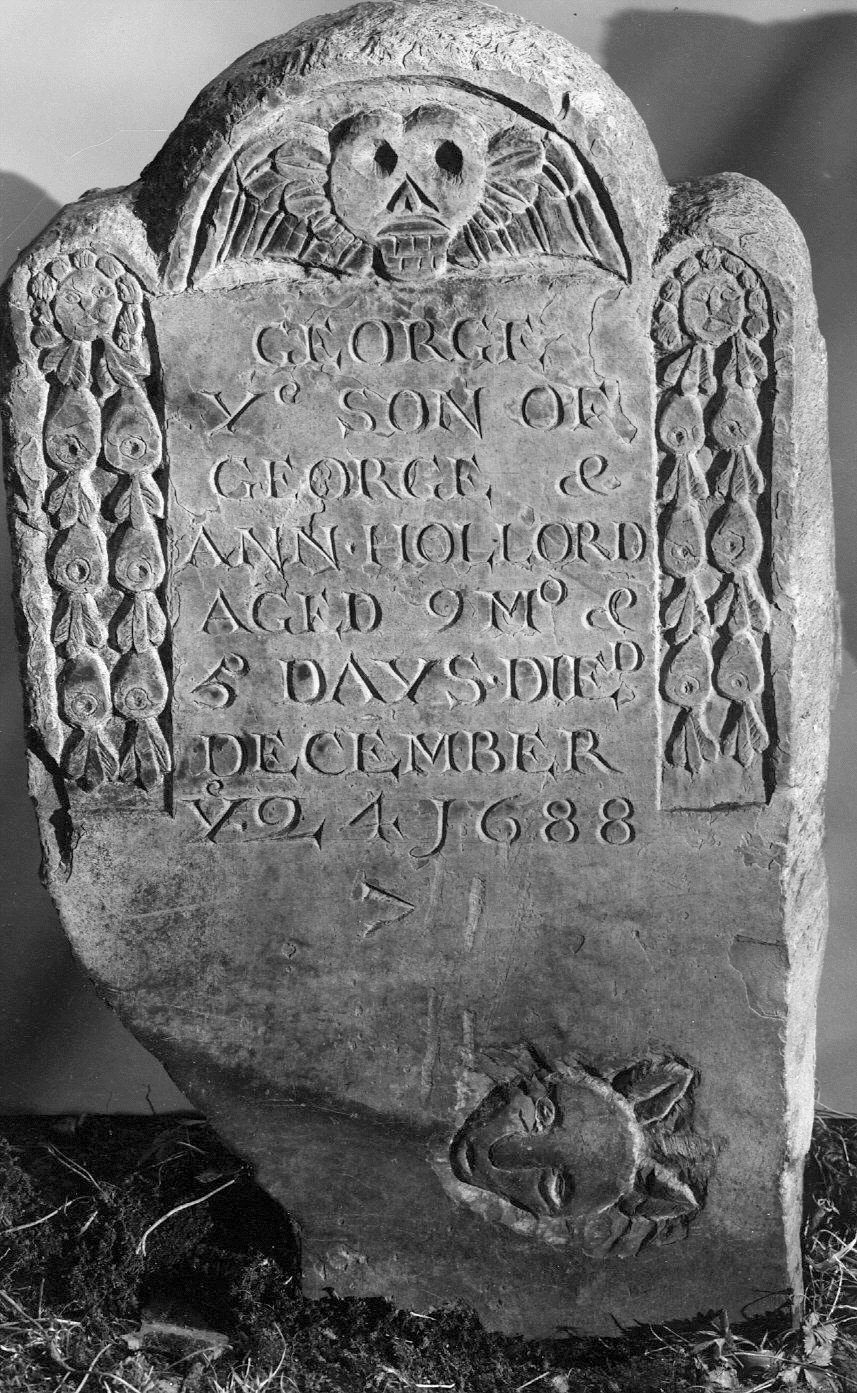 GEORGE
Yᵉ SON OF
GEORGE &
ANN·HOLLORD
AGED 9 Mᵒ &
5 DAYS·DIEᴰ
DECEMBER
Yᵉ 24 J688